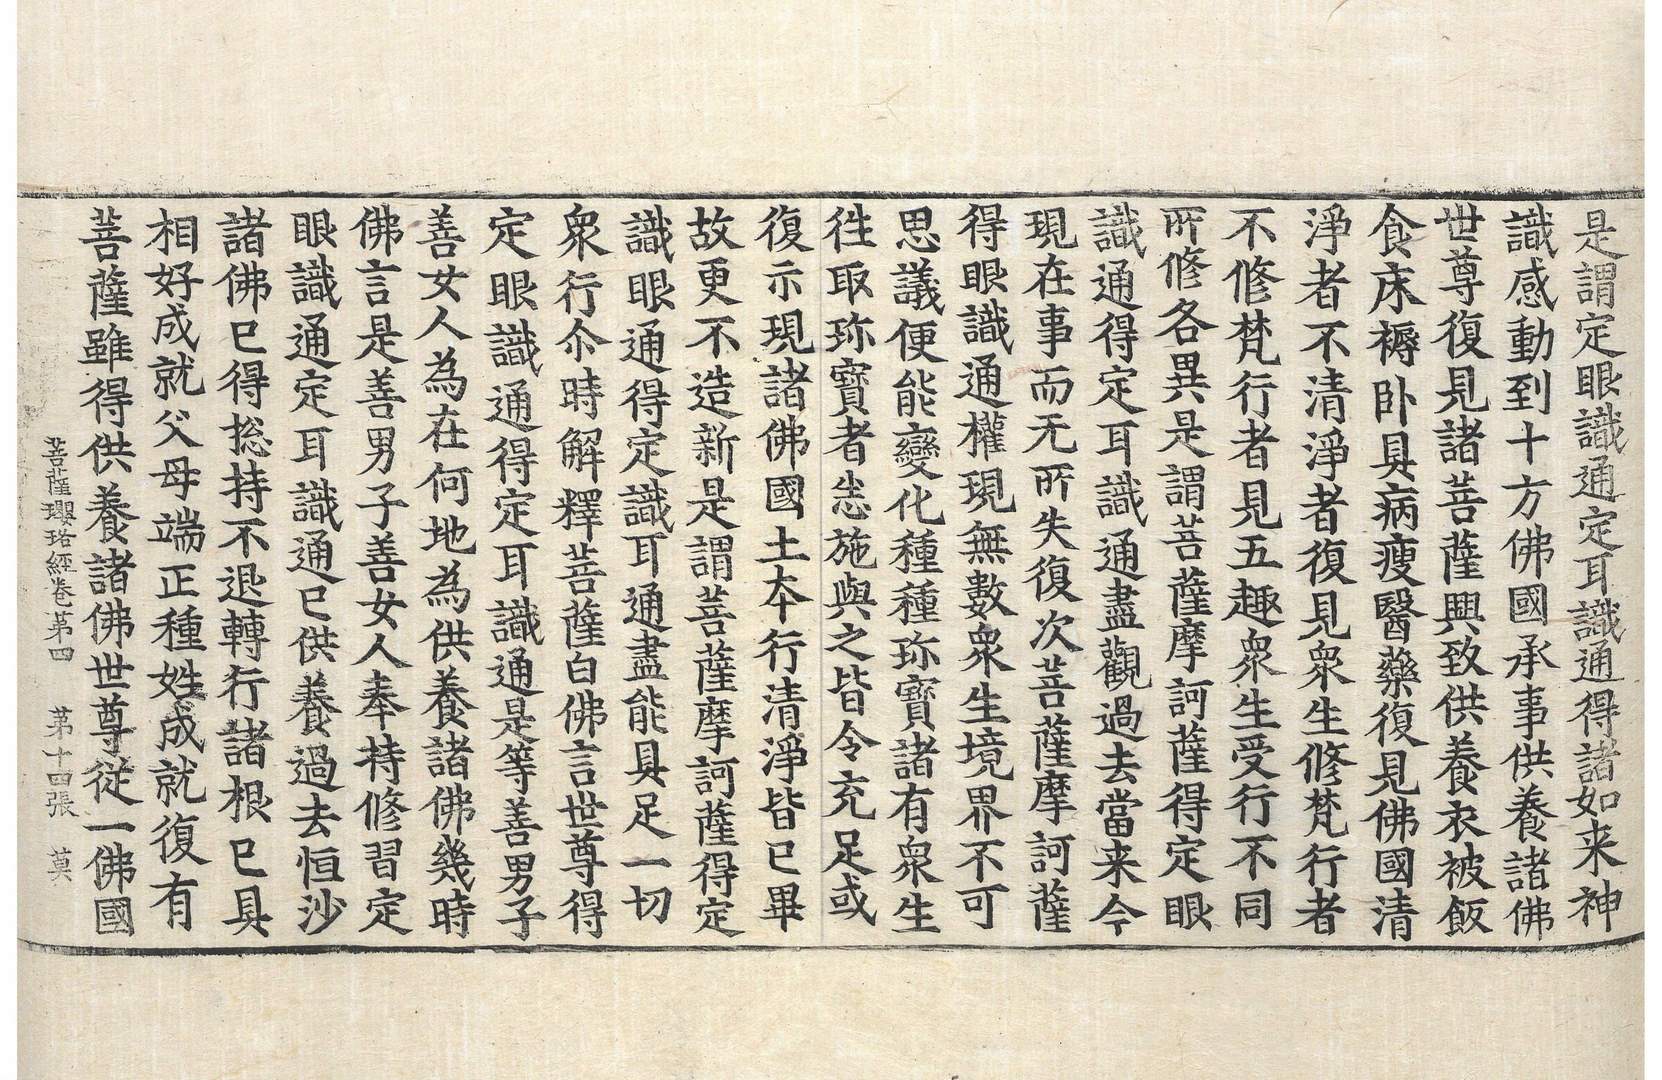 是謂定眼識通定耳識通得諸如来神
識感動到十方佛國承事供養諸佛
世尊復見諸菩薩興致供養衣被飯
食床褥卧具病瘦醫藥復見佛國清
淨者不清淨者復見衆生修梵行者
不修梵行者見五趣衆生受行不同
所修各異是謂菩薩摩訶薩得定眼
識通得定耳識通盡觀過去當来今
現在事而无所失復次菩薩摩訶薩
得眼識通權現無數衆生境界不可
思議便能變化種種珎寶諸有衆生
徃取珎寶者悉施與之皆令充足或
復示現諸佛國土夲行清淨皆已畢
故更不造新是謂菩薩摩訶薩得定
識眼通得定識耳通盡能具足一切
衆行尒時解釋菩薩白佛言世尊得
定眼識通得定耳識通是等善男子
善女人為在何地為供養諸佛幾時
佛言是善男子善女人奉持修習定
眼識通定耳識通已供養過去恒沙
諸佛已得捴持不退轉行諸根已具
相好成就父母端正種姓成就復有
菩薩雖得供養諸佛世尊從一佛國
菩薩瓔珞經卷苐四　苐十四張　莫